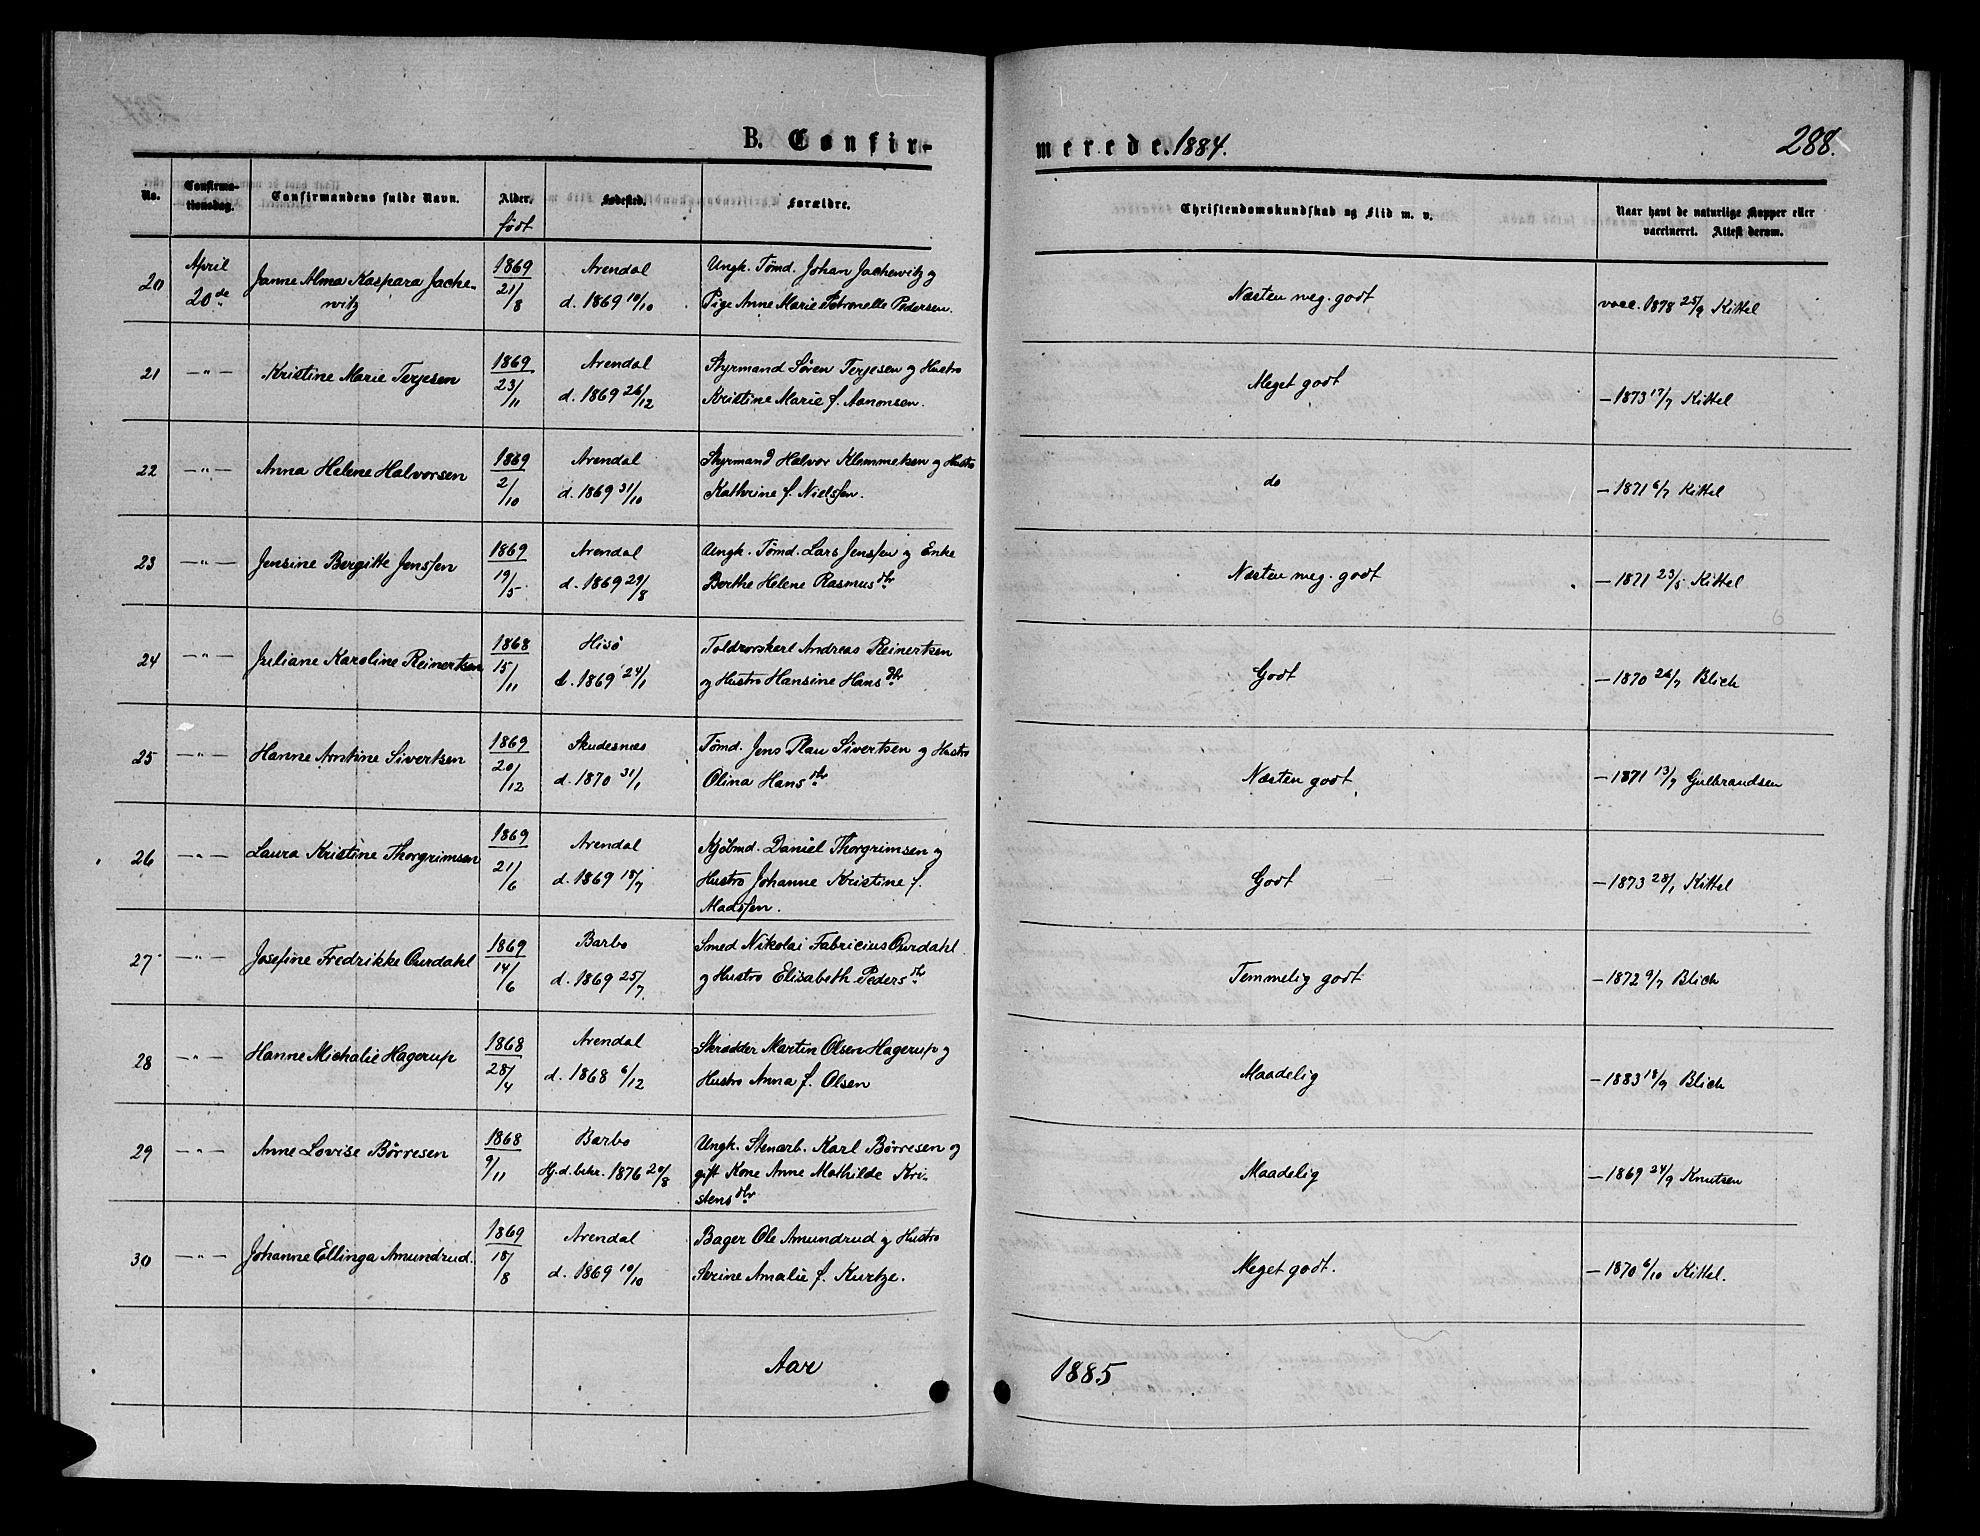 B. Confir-
merede. 1884.
288.
No.
Confirma-
tionsdag.
Confirmandens fulde Navn.
Alder.
født
Fødested.
Forældre.
Christendomskundskab og Flid m. v.
Naar havt de naturlige Kopper eller
vaccineret. Attest derom.
20
April
20de
Janne Alma Kaspara Jache-
witz
1869
21/8
Arendal
d. 1869 10/10
Ungk. Tømd. Johan Jachewitz og
Pige Anne Marie Petronelle Pedersen.
Næsten meg. godt
vacc. 1878 25/9 Kittel
21
—"—
Kristine Marie Terjesen
1869
23/11
Arendal
d. 1869 26/12
Styrmand Søren Terjesen og Hustro
Kristine Marie f. Aanonsen.
Meget godt
— 1873 17/7 Kittel
22
—"—
Anna Helene Halvorsen
1869
2/10
Arendal
d. 1869 31/10
Styrmand Halvor Klemmetsen og Hustro
Kathrine f. Nielssen.
do
— 1871 6/7 Kittel
23
—"—
Jensine Bergitte Jenssen
1869
19/5
Arendal
d. 1869 29/8
Ungk. Tømd. Lars Jenssen og Enke
Berthe Helene Rasmusdtr
Næsten meg. godt
— 1871 23/5 Kittel
24
—"—
Juliane Karoline Reinertsen
1868
15/11
Hisø
d. 1869 24/1
Toldrorskarl Andreas Reinertsen
og Hustro Hansine Hansdtr
Godt
— 1870 26/7 Blich
25
—"—
Hanne Arntine Sivertsen
1869
20/12
Skudesnæs
d. 1870 31/1
Tømd. Jens Plau Sivertsen og Hustro
Olina Hansdtr
Næsten godt
— 1871 13/7 Gulbrandsen
26
—"—
Laura Kristine Thorgrimsen
1869
21/6
Arendal
d. 1869 18/7
Kjøbmd. Daniel Thorgrimsen og
Hustro Johanne Kristine f.
Madssen.
Godt
— 1873 28/1 Kittel
27
—"—
Josefine Fredrikke Ourdahl
1869
14/6
Barbo
d. 1869 25/7
Smed Nikolai Fabricius Ourdahl
og Hustro Elisabeth Pedersdtr
Temmelig godt
— 1872 9/7 Blich
28
—"—
Hanne Michalie Hagerup
1868
28/4
Arendal
d. 1868 6/12
Skrædder Martin Olsen Hagerup og
Hustro Anna f. Olsen
Maadelig
— 1883 18/9 Blich
29
—"—
Anne Lovise Børresen
1868
9/11
Barbo
Hj. d. bekr. 1876 20/8
Ungk. Stenarb. Karl Børresen og
gift Kone Anne Mathilde Kri-
stensdtr
Maadelig
— 1869 24/9 Knutsen
30
—"—
Johanne Ellinga Amundrud.
1869
18/8
Arendal
d. 1869 10/10
Bager Ole Amundrud og Hustro
Serine Amalie f. Kurtze.
Meget godt.
— 1870 6/10 Kittel.
Aar
1885